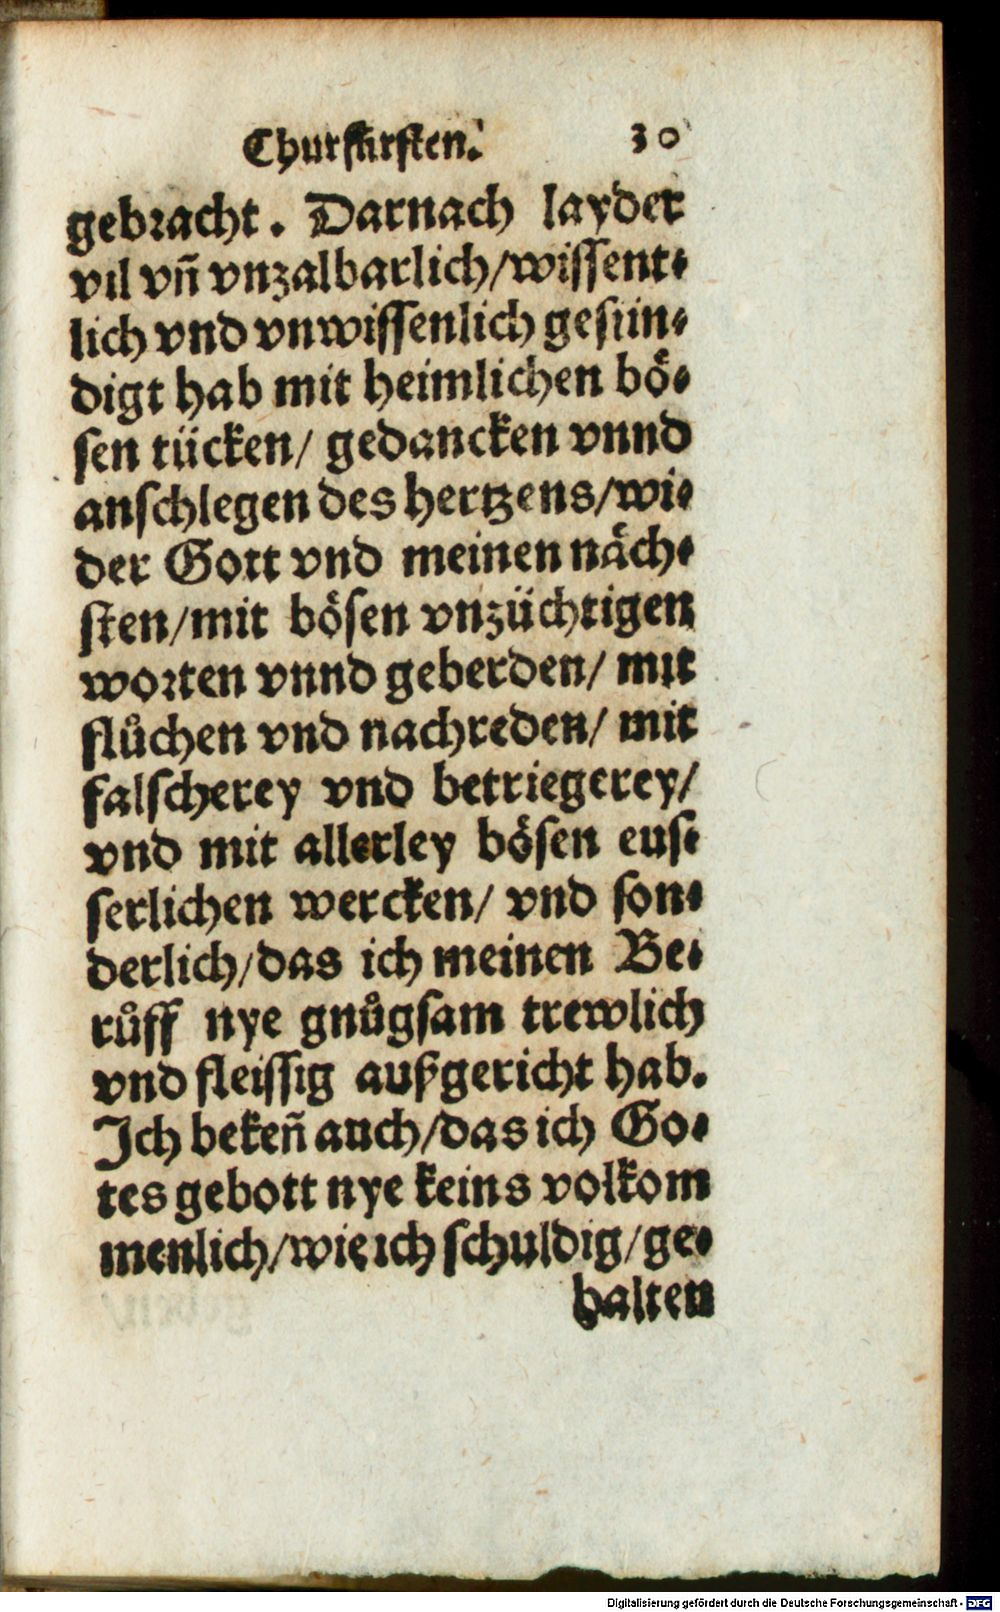 Churfürsten. 30
gebracht. Darnach layder
vil vñ vnzalbarlich/wissent-
lich vnd vnwissenlich gesün-
digt hab mit heimlichen bö-
sen tücken/ gedancken vnnd
anschlegen des hertzens/wi-
der Gott vnd meinen näch-
sten/mit bösen vnzüchtigen
worten vnnd geberden/ mit
flůchen vnd nachreden/ mit
falscherey vnd betriegerey/
vnd mit allerley bösen eus-
serlichen wercken/ vnd son-
derlich/das ich meinen Be-
růff nye gnůgsam trewlich
vnd fleissig außgericht hab.
Ich bekeñ auch/das ich Go-
tes gebott nye keins volkom
menlich/wie ich schuldig/ge-
halten
Digitalisierung gefördert durch die Deutsche Forschungsgemeinschaft - DFG